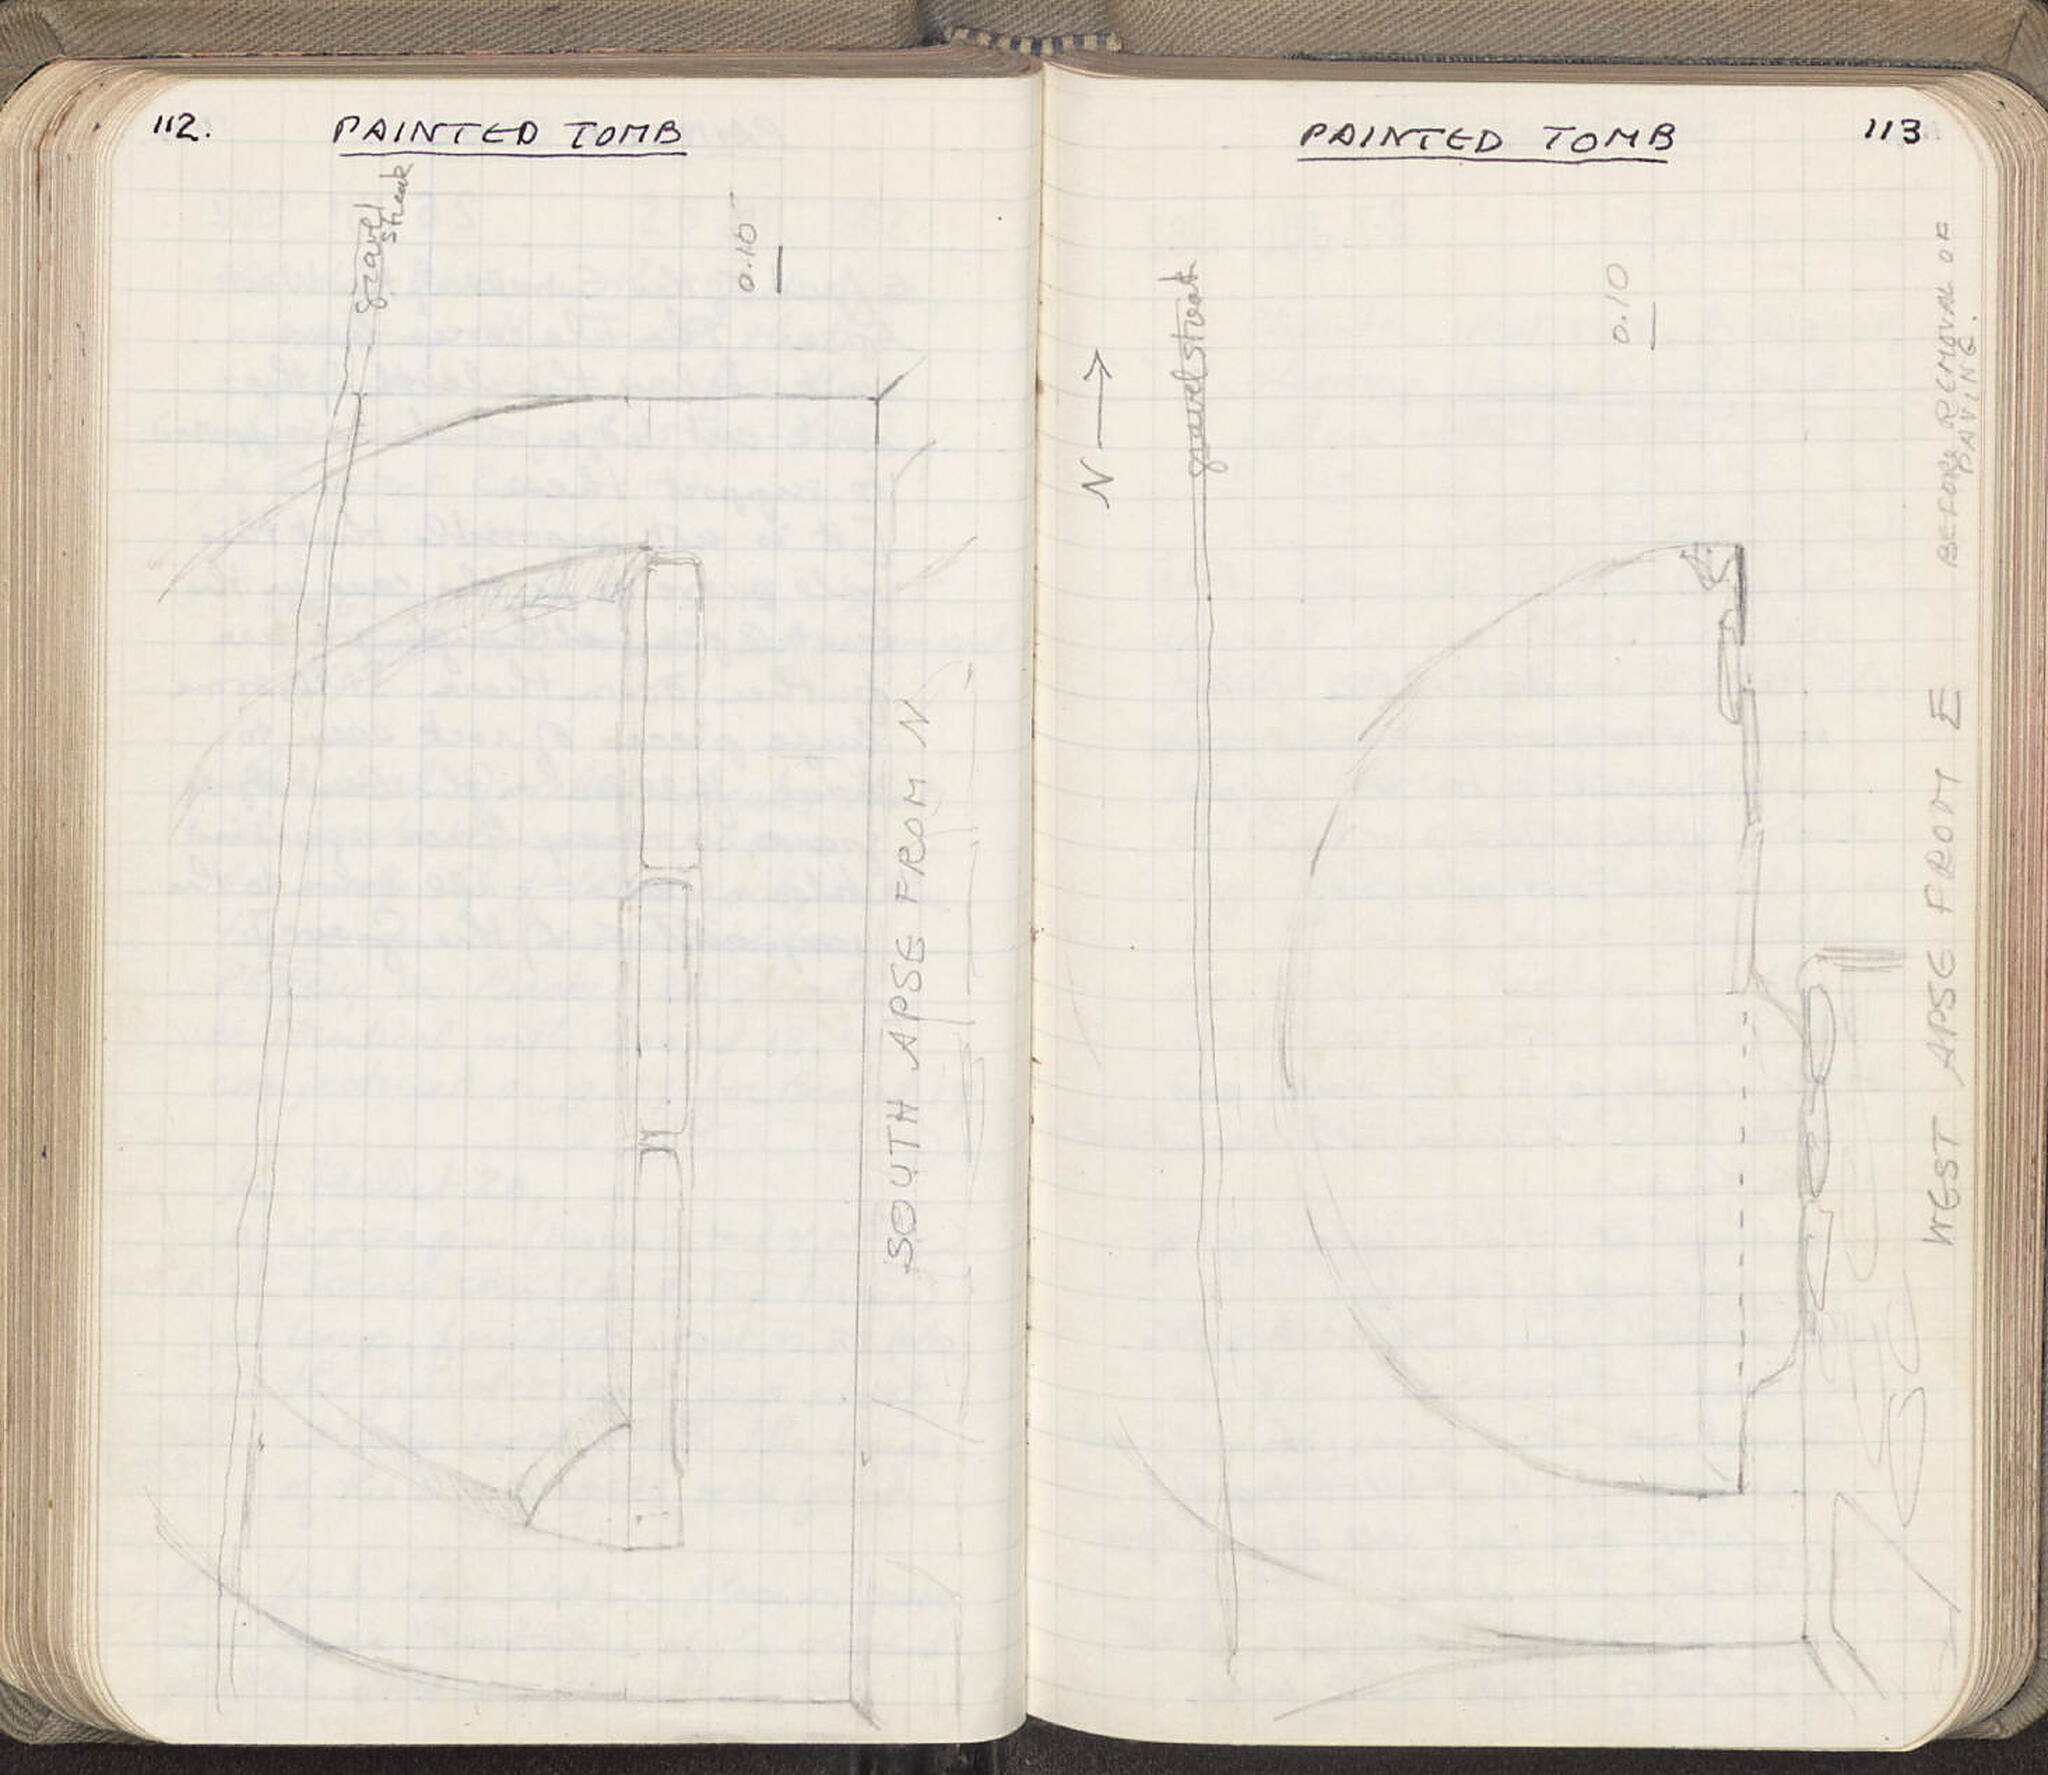 112.
PAINTED TOMB
gravel
streak
0.10
SOUTH APSE FROM N
PAINTED TOMB
113
N
gravel streak
0.10
WEST APSE FROM E
BEFORE REMOVAL OF
PAVING.